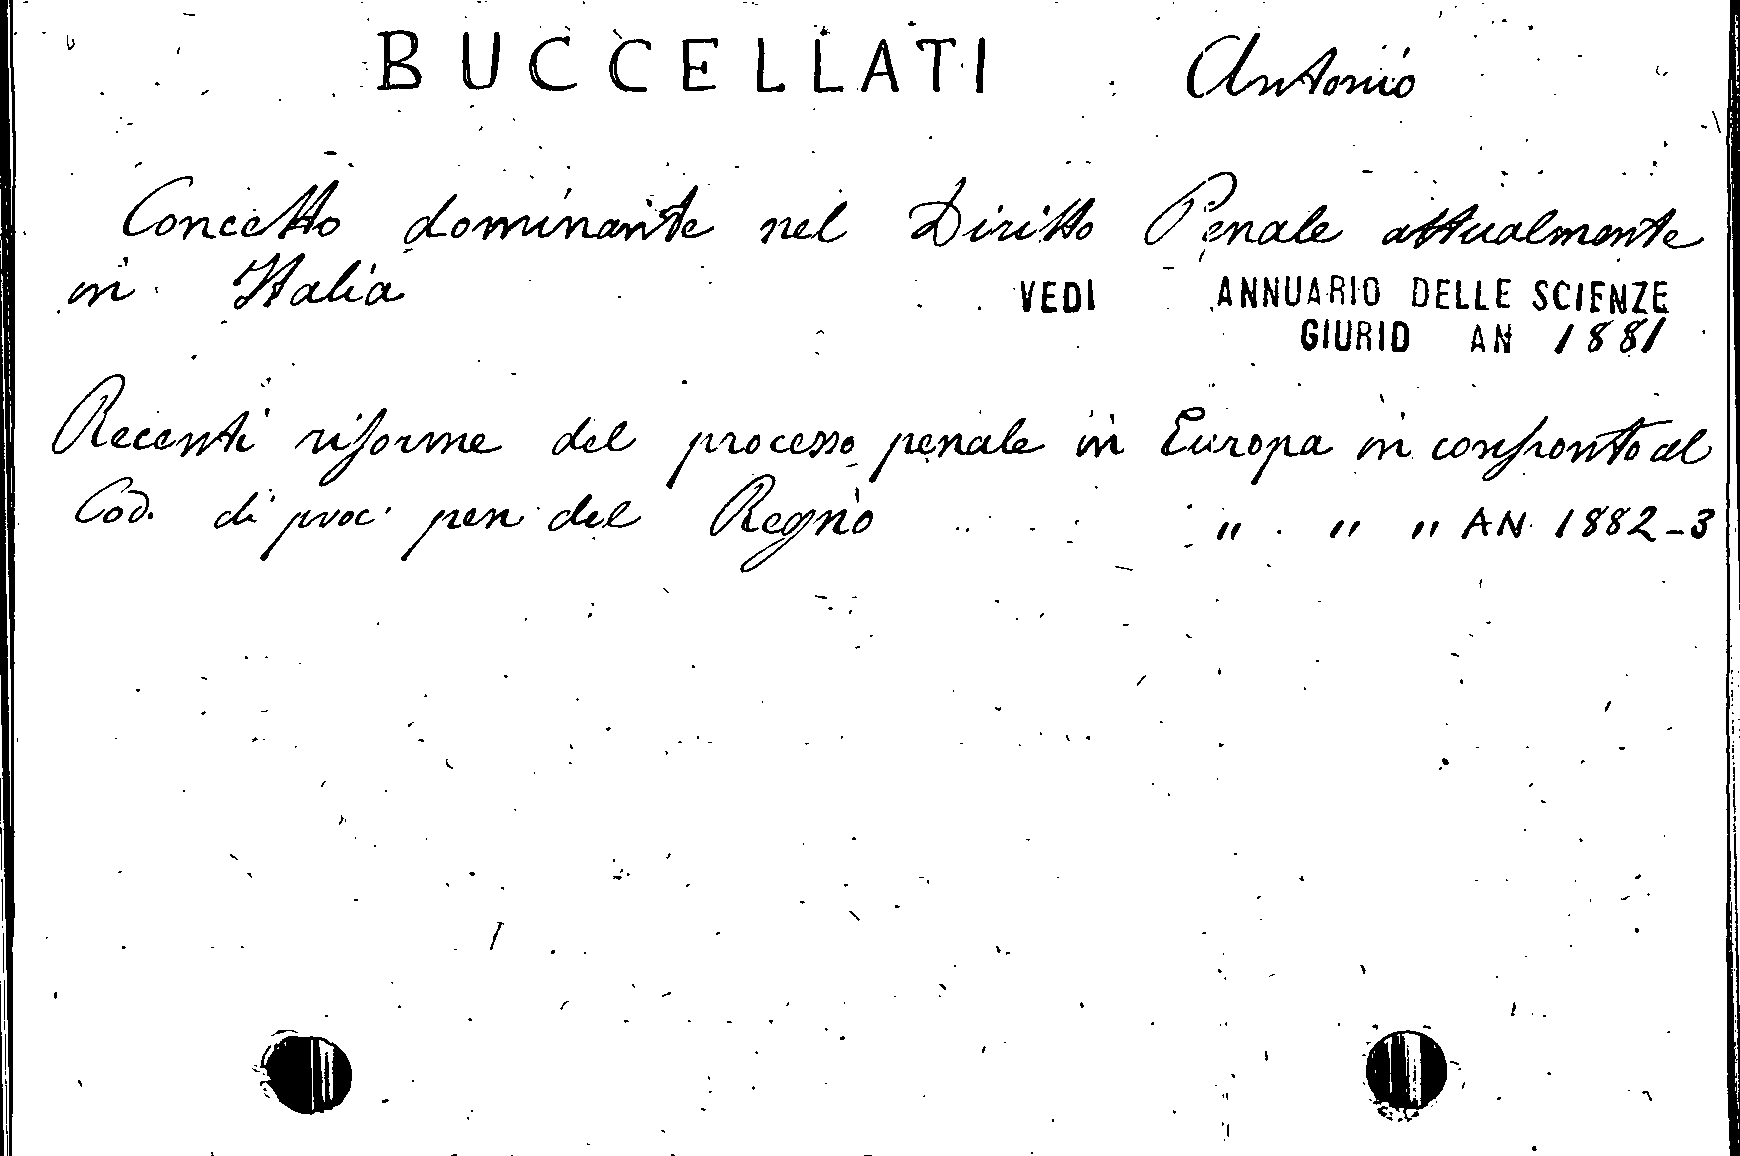 BUCCELLATI Antonio
Concetto dominante nel Diritto Penale attualmente
in Italia VEDI ANNUARIO DELLE SCIENZE
GIURID AN 1881
Recenti riforme del processo penale in Europa in confronto al
Cod. di proc. pen. del Regno " " " AN. 1882-3